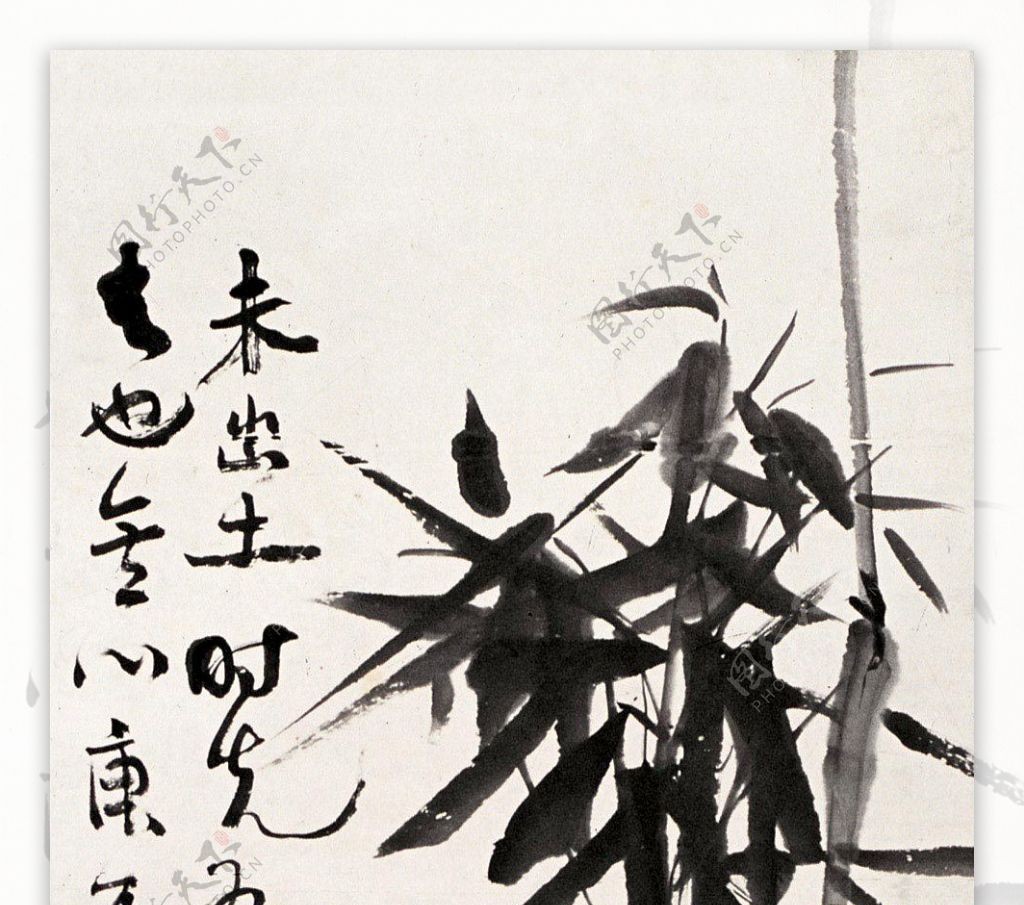 未出土时先
去也無心庚
图行天下
PHOTOPHOTO.CN
图行天下
PHOTOPHOTO.CN